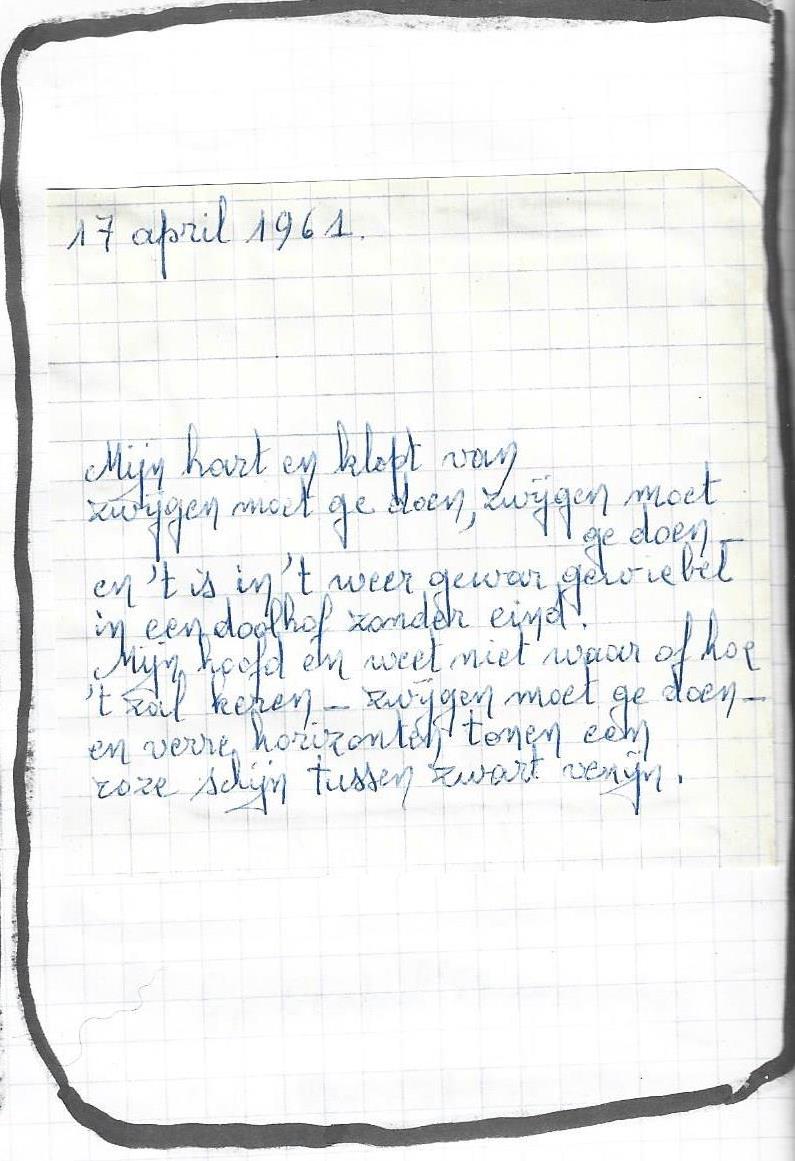 17 april 1961.
Mijn hart en klopt van
zwijgen moet ge doen, zwijgen moet
ge doen –
en 't is in 't weer gewar gewiebel
in een doolhof zonder eind.
Mijn hoofd en weet niet waar of hoe
't zal keren – zwijgen moet ge doen –
en verre horizonten tonen een
roze schijn tussen zwart venijn.